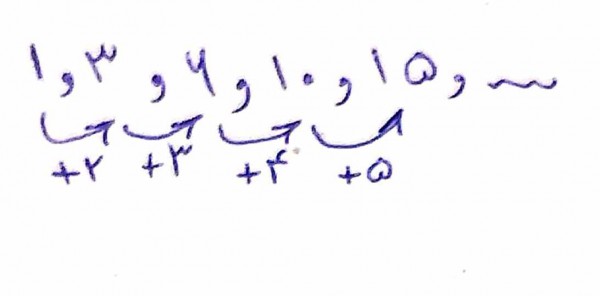 ۱ و ۳ و ۶ و ۱۰ و ۱۵ و ...
+۲ +۳ +۴ +۵